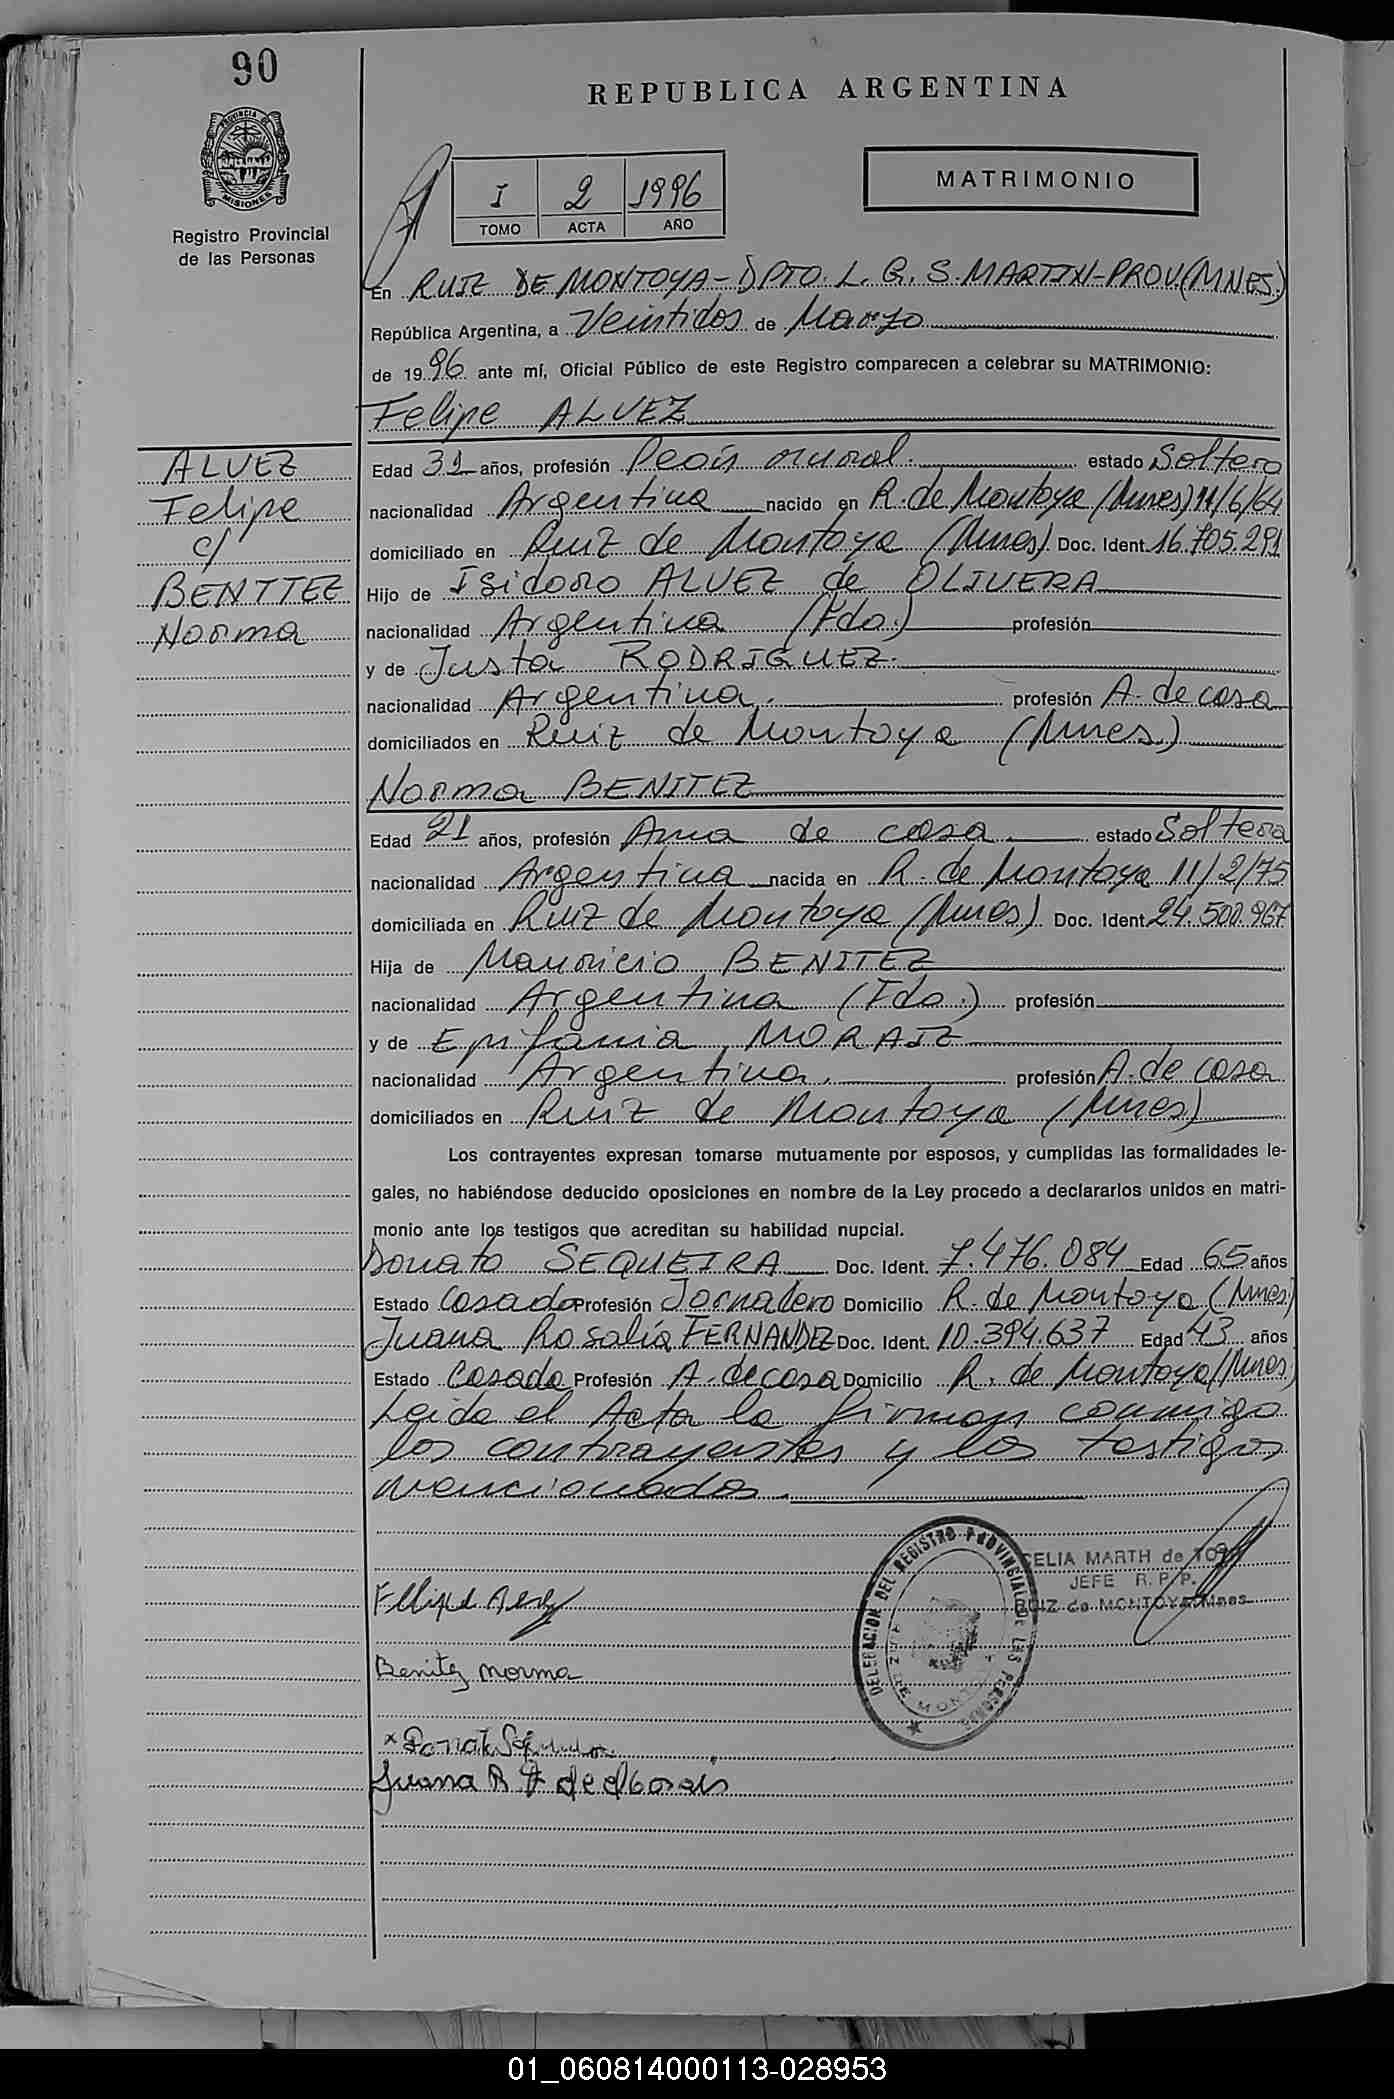 90
REPUBLICA ARGENTINA
PROVINCIA DE MISIONES
Registro Provincial
de las Personas
I 2 1996
TOMO ACTA AÑO
MATRIMONIO
En RUIZ DE MONTOYA-DPTO. L. G. S. MARTIN-PROV.(MNES.)
República Argentina, a Veintidos de Marzo
de 1996 ante mí, Oficial Público de este Registro comparecen a celebrar su MATRIMONIO:
Felipe ALVEZ
ALVEZ
Felipe
c/
BENITEZ
Norma
Edad 31 años, profesión Peón rural. estado Soltero
nacionalidad Argentina nacido en R. de Montoya (Mnes) 11/6/64
domiciliado en Ruiz de Montoya (Mnes). Doc. Ident. 16.705.291
Hijo de Isidoro ALVEZ de OLIVERA
nacionalidad Argentina (Fdo.) profesión
y de Justa RODRIGUEZ.
nacionalidad Argentina. profesión A. de casa
domiciliados en Ruiz de Montoya (Mnes.)
Norma BENITEZ
Edad 21 años, profesión Ama de casa. estado Soltera
nacionalidad Argentina nacida en R. de Montoya 11/2/75
domiciliada en Ruiz de Montoya (Mnes). Doc. Ident. 24.500.967
Hija de Mauricio BENITEZ
nacionalidad Argentina (Fdo.) profesión
y de Epifania MORAIZ
nacionalidad Argentina. profesión A. de casa
domiciliados en Ruiz de Montoya (Mnes)
Los contrayentes expresan tomarse mutuamente por esposos, y cumplidas las formalidades le-
gales, no habiéndose deducido oposiciones en nombre de la Ley procedo a declararlos unidos en matri-
monio ante los testigos que acreditan su habilidad nupcial.
Donato SEQUEIRA Doc. Ident. 7.476.084 Edad 65 años
Estado Casado Profesión Jornalero Domicilio R. de Montoya (Mnes)
Juana Rosalía FERNANDEZ Doc. Ident. 10.394.637 Edad 43 años
Estado Casada Profesión A. de casa Domicilio R. de Montoya (Mnes)
Leida el Acta la firman conmigo
los contrayentes y los testigos
mencionados.
DELEGACION DEL REGISTRO PROVINCIAL DE LAS PERSONAS
CELIA MARTH de
JEFE R. P. P.
RUIZ de MONTOYA-Mnes
Benitez norma
Juana R F de
01_060814000113-028953